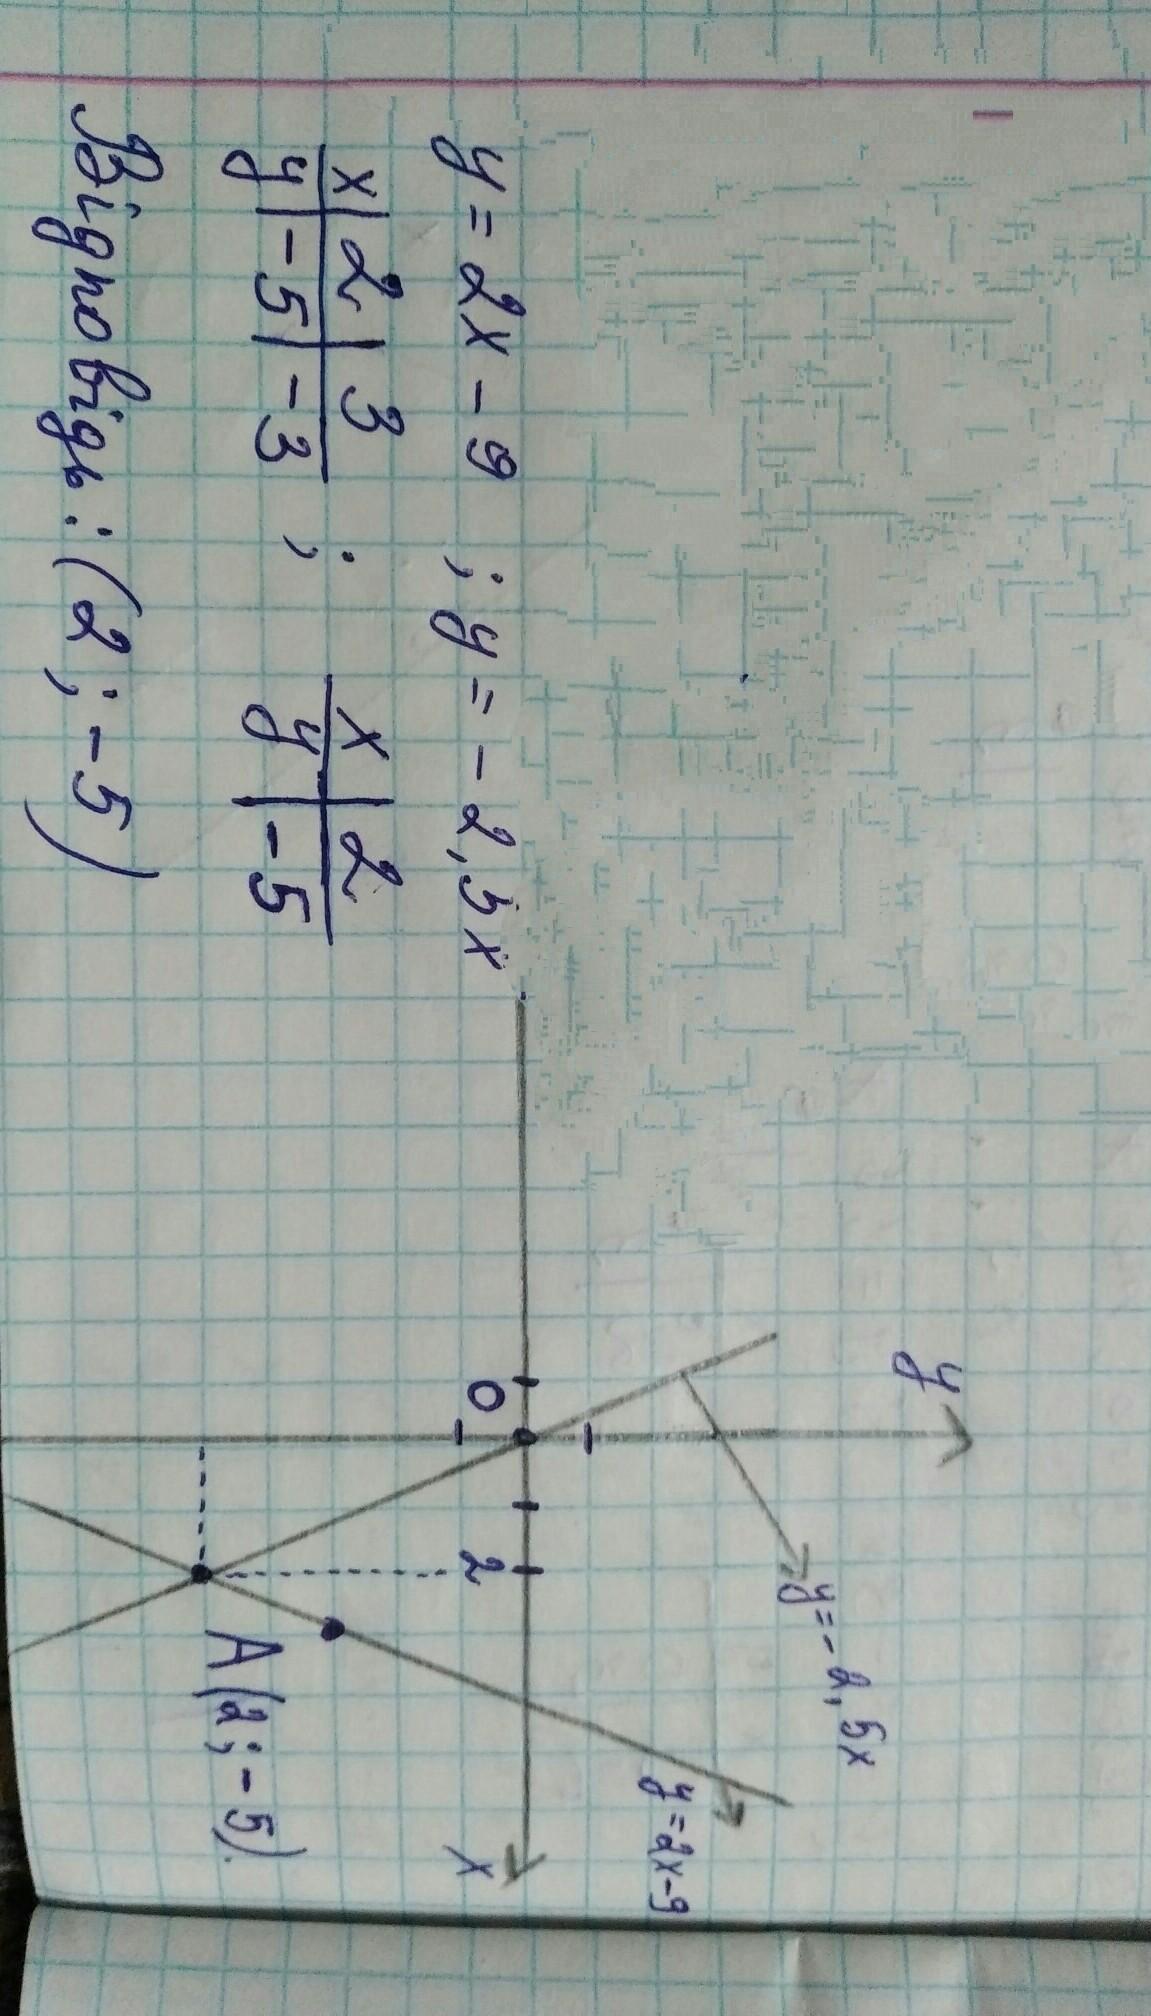 y = 2x - 9 ; y = - 2,5x
x 2 3
y -5 -3 ;
x 2
y -5
Відповідь: (2 ; -5)
y
y = - 2,5x
y = 2x-9
0
2
x
A (2 ; -5).